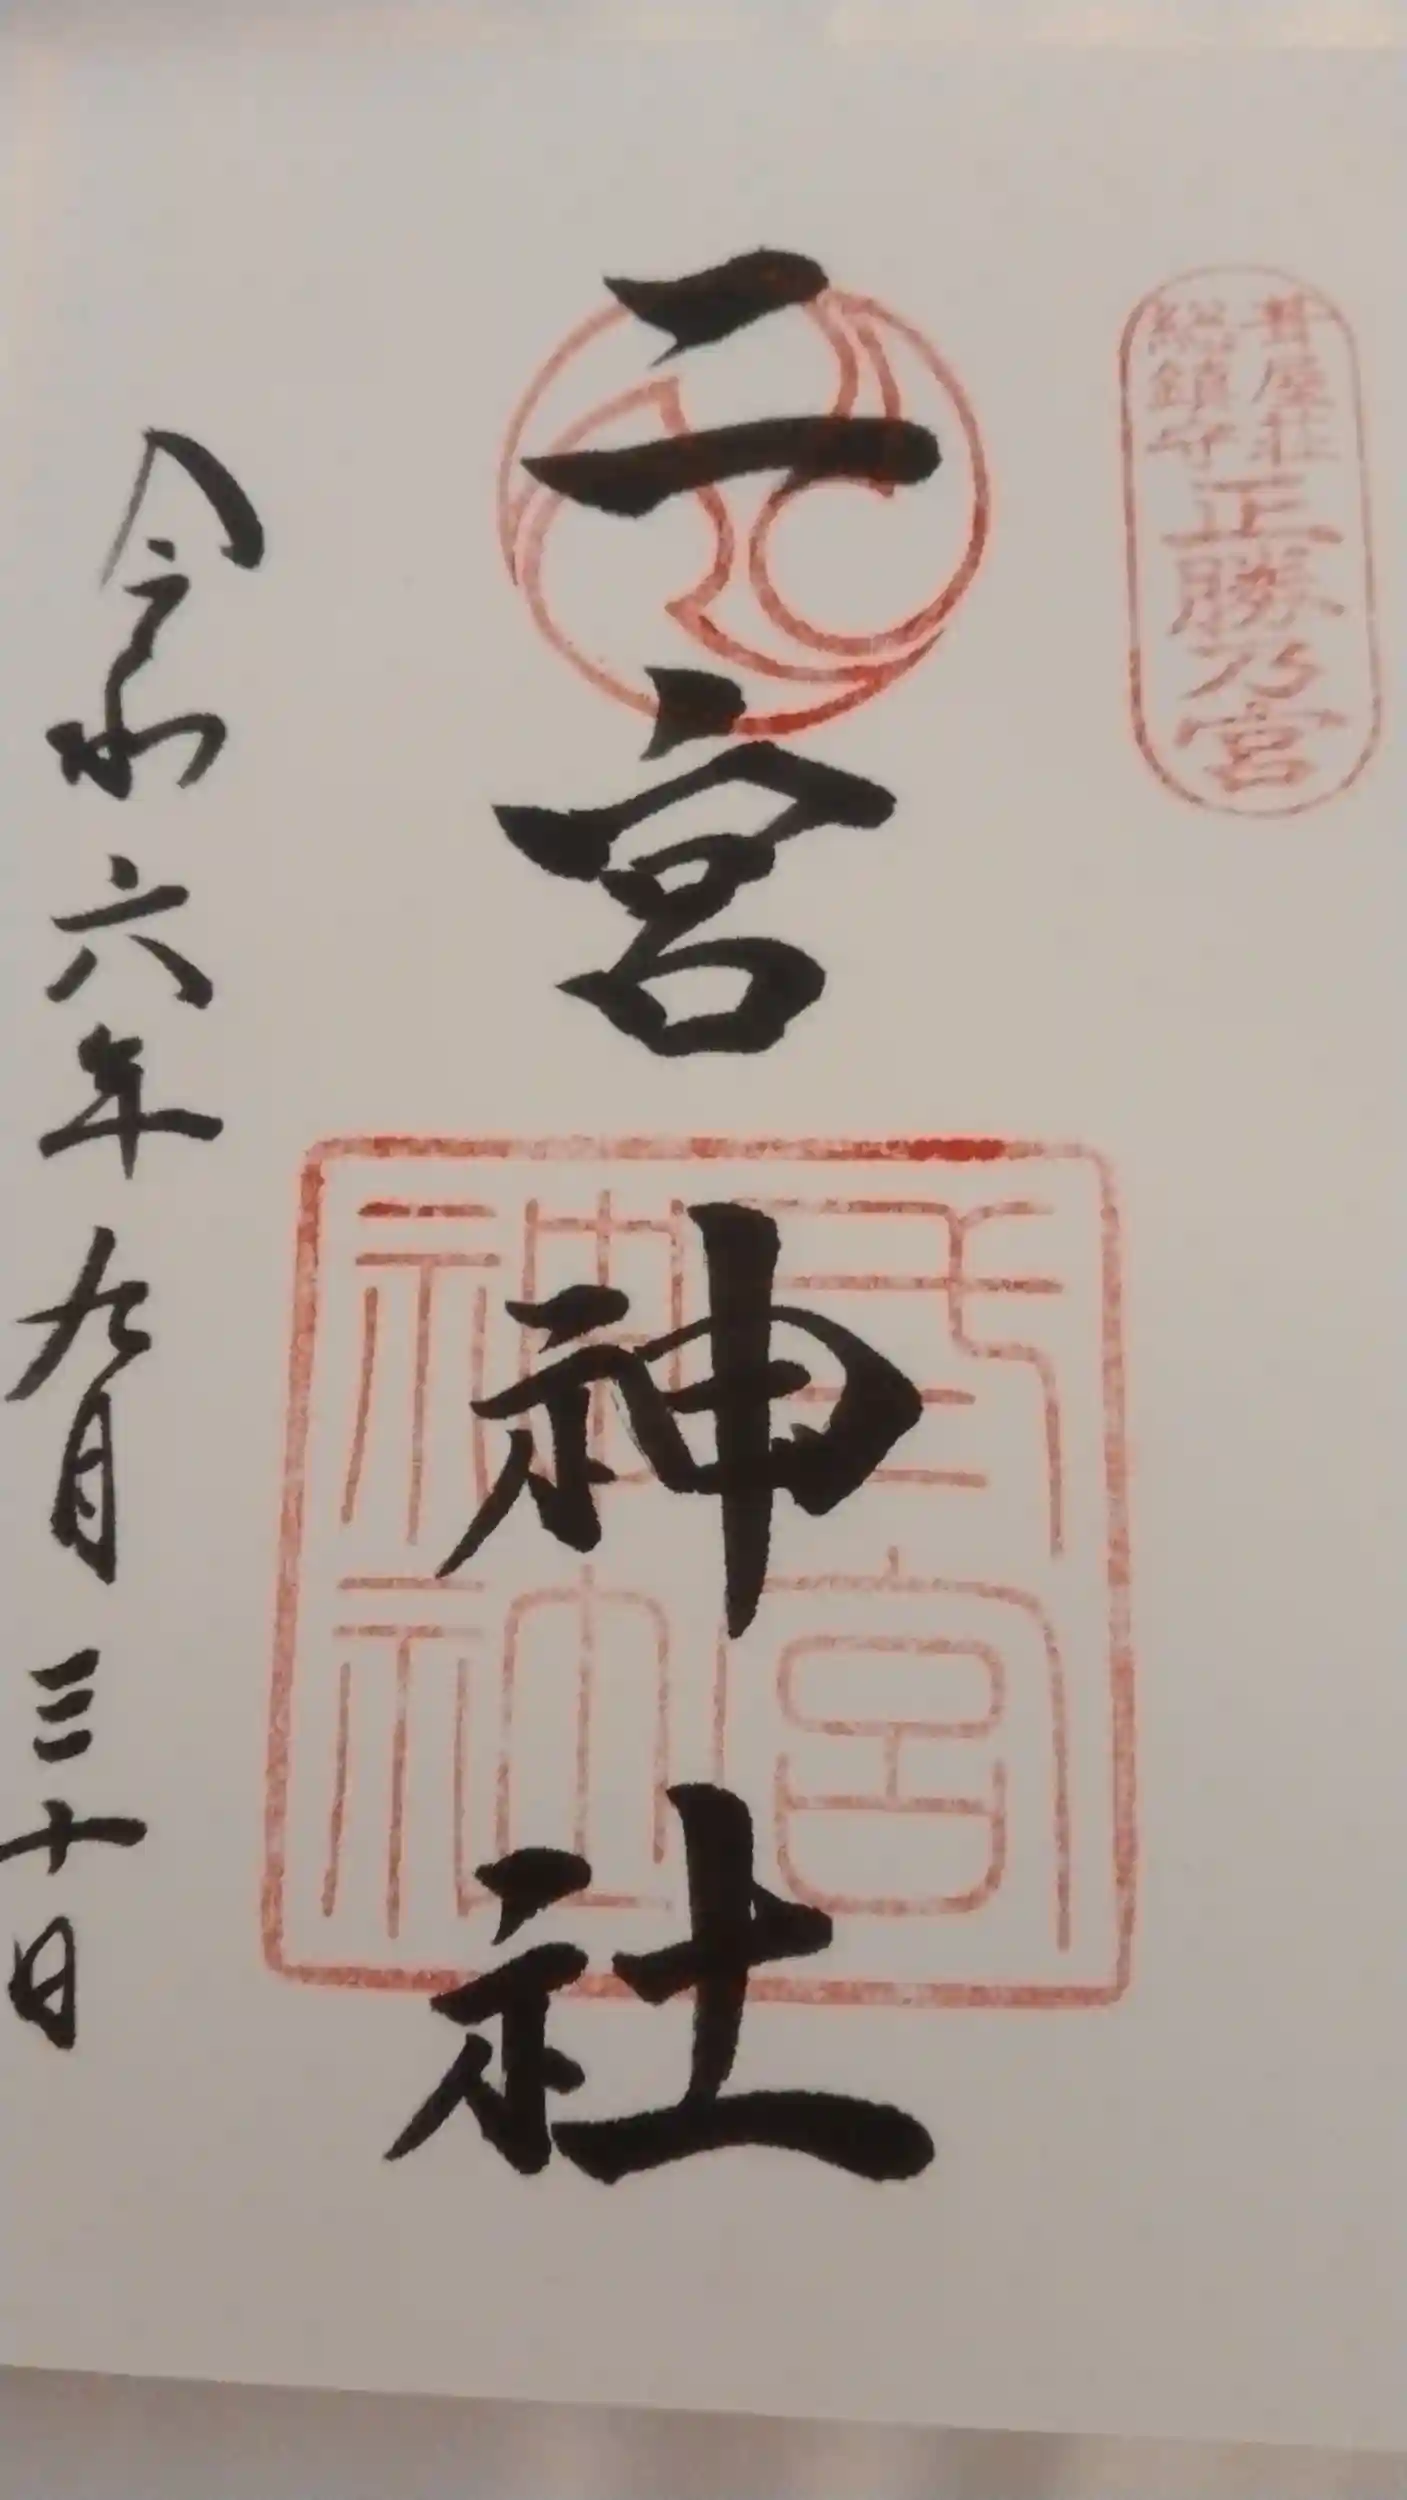 葺屋荘
総鎮守
正勝乃宮
二宮神社
弍宮
神社
令和六年九月三十日